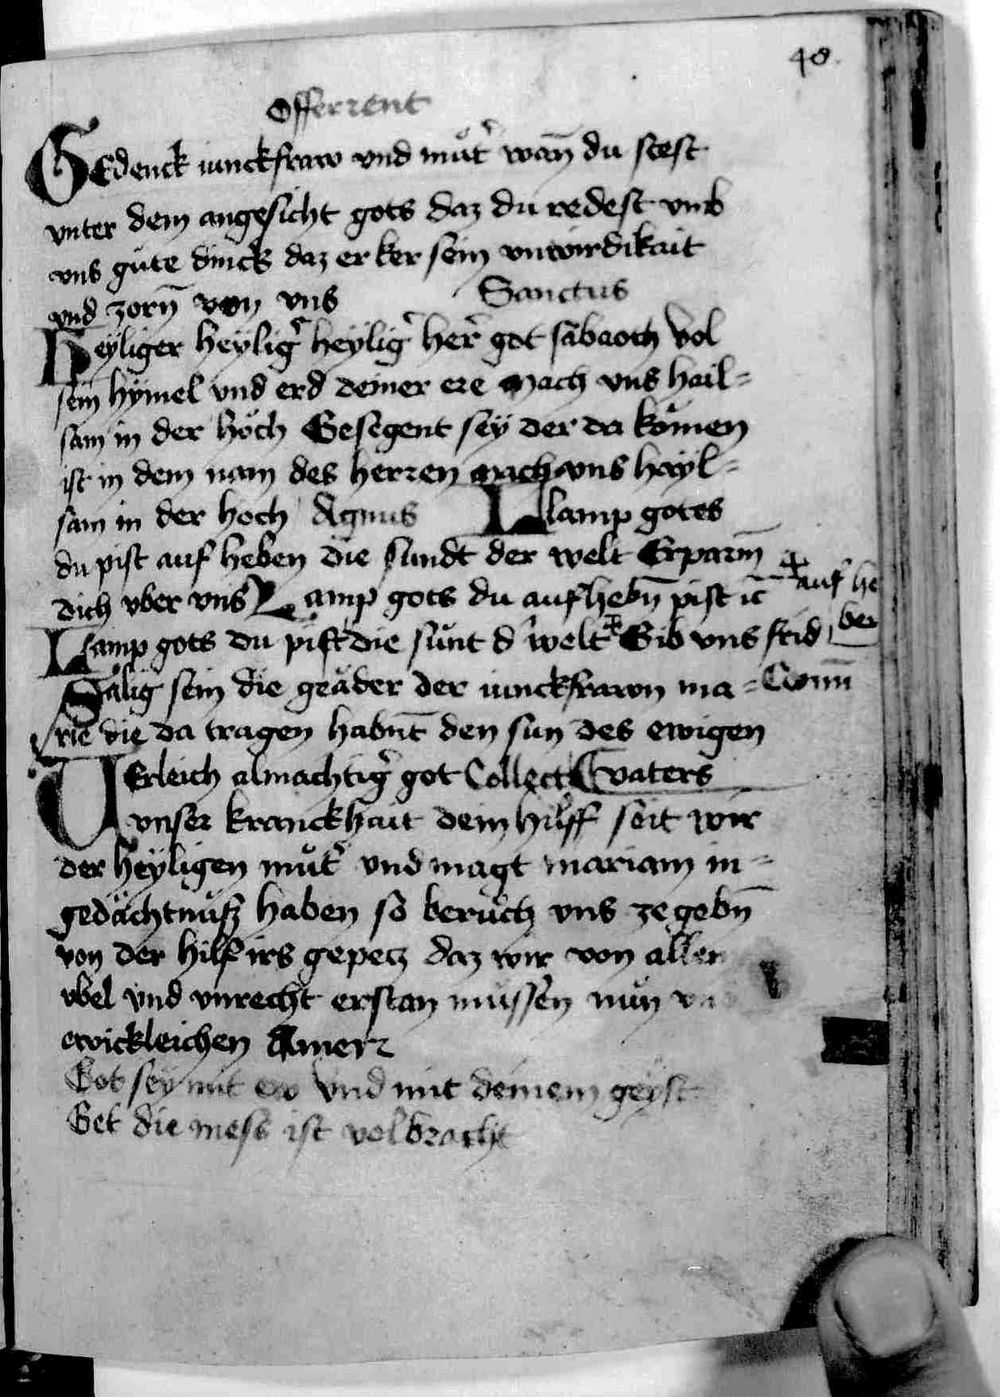 48.
Offerrent
GEdenck iunckfraw vnd můt̉ wan̄ du stest
vnter dem angesicht gots daz du redest vmb
vns gůte dinck daz er ker sein vnwirdikait
vnd zorn̄ von vns Sanctus
Heyliger heylig̉ heylig̉ her̉ got sabaoth Vol
sein hymel vnd erd deiner ere Mach vns hail=
sam in der höch Gesegent sey der da kömen
ist in dem nam des herren mach vns hayl=
sam in der hoch Agnus Llamp gotes
du pist auf heben die sundt der welt Erparm̄
dich vber vns Lamp gots du aufhebn̄ pist
✝auf he
ber
Lamp gots du pist die sunt d̉ welt ✝ Gib vns frid
Sälig sein die gräber der iunckfrawn ma= Com̄
rie die da tragen habn̄t den sun des ewigen
Erleich almachtig̉ got Collect vaters
vnser kranckhait dein hilff seit wir
der heyligen můt̉ vnd magt mariam in=
gedächtnůsz haben so berůch vns ze gebn̄
von der hilf irs gepetz daz wir von allen
vbel vnd vnrecht erstan müssen nun
ewickleichen Amen
Got sey mit ew Vnd mit deinem geyst
Get die mess ist volbracht